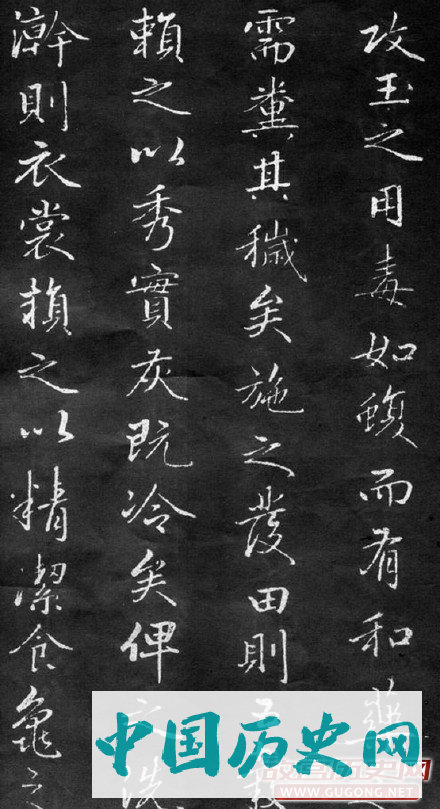 攻玉之用毒如蝮而有和藥
需糞其穢矣施之發田則五穀
賴之以秀實灰既冷矣俾之洗
澣則衣裳賴之以精潔食龜之
中国历史网
WWW.GUGONG.NET